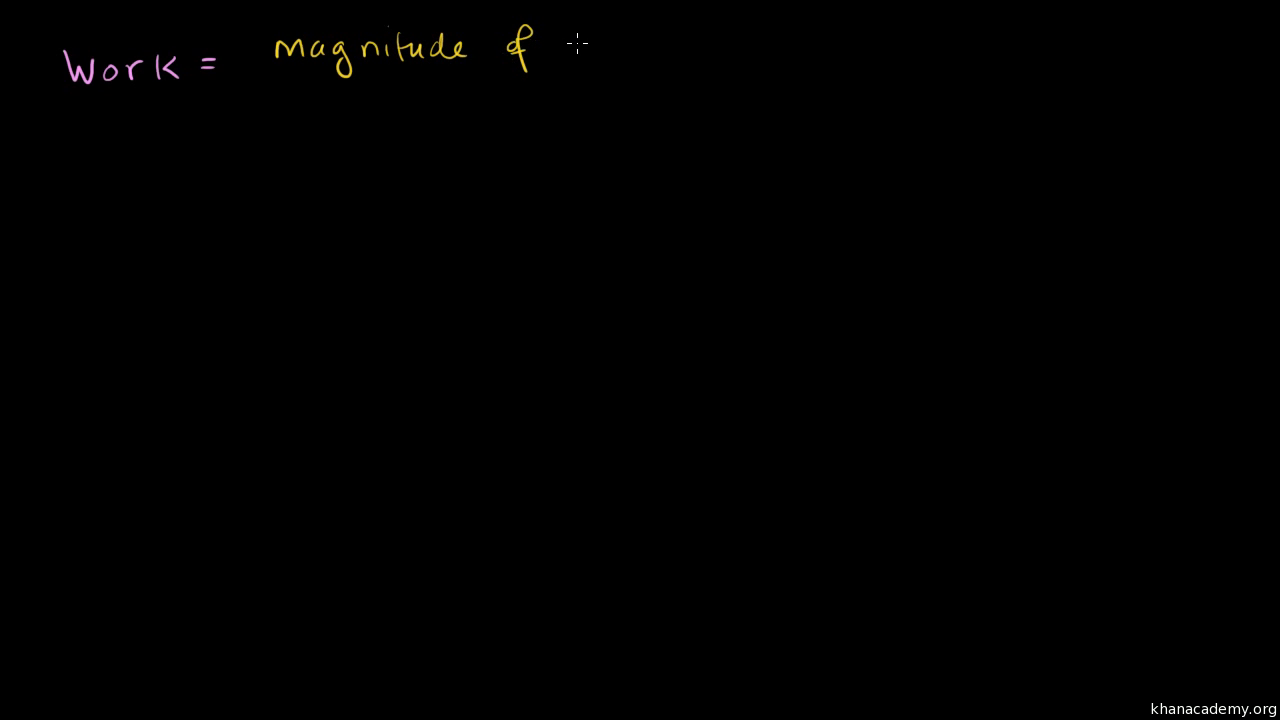 Work = magnitude of
khanacademy.org